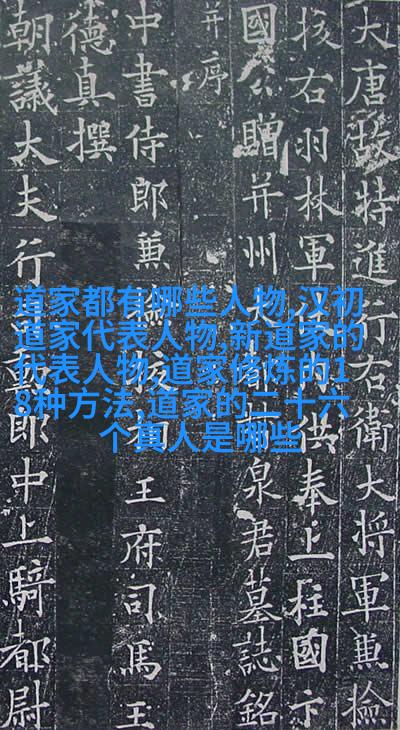 大唐故特進行右衛大將軍兼檢
校右羽林軍仗內供奉上柱國卞
國公贈并州大都督泉君墓誌銘
并序
中書侍郎兼檢校相王府司馬王
德真撰
朝議大夫行司勳郎中上騎都尉
道家都有哪些人物,汉初
道家代表人物,新道家的
代表人物,道家修炼的1
8种方法,道家的二十六
个真人是哪些